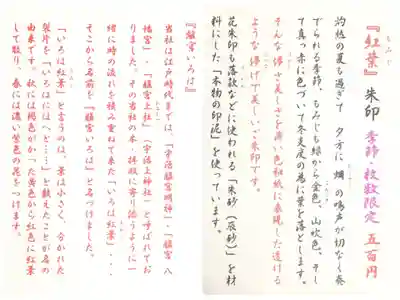 『紅葉』朱印 季節枚数限定 五百円
灼熱の夏も過ぎて 夕方に 蜩の鳴声が切なく奏
でられる季節、もみじも緑から金色、山吹色、そし
て真っ赤に色づいて冬支度の為に葉を落とします。
そんな儚さ美しさを薄い色和紙に表現した透ける
ような 儚げで美しいご朱印です。
花朱印も落款などに使われる「朱砂(辰砂)」を材
料にした「本物の印泥」を使っています。
『離宮いろは』
当社は江戸時代までは、「宇治離宮明神」・「離宮八
幡宮」・「離宮上社」(宇治上神社)と呼ばれてお
ります。その当社の本・拝殿に寄り添うように一
緒に時の流れを積み重ねて来た「いろは紅葉」・・・
そこから名前を『離宮いろは』と名づけました。
「いろは紅葉」と言うのは、葉は小さく、分かれた
裂片を「いろはにほへと…」と数えたことが名の
由来です。秋には褐色がかった黄色から紅色に紅葉
して散り、春には濃い紫色の花をつけます。